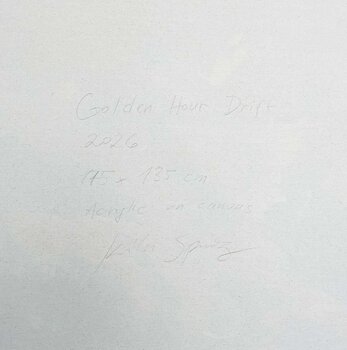 Golden Hour Drift
2026
135 cm
Acrylic on canvas